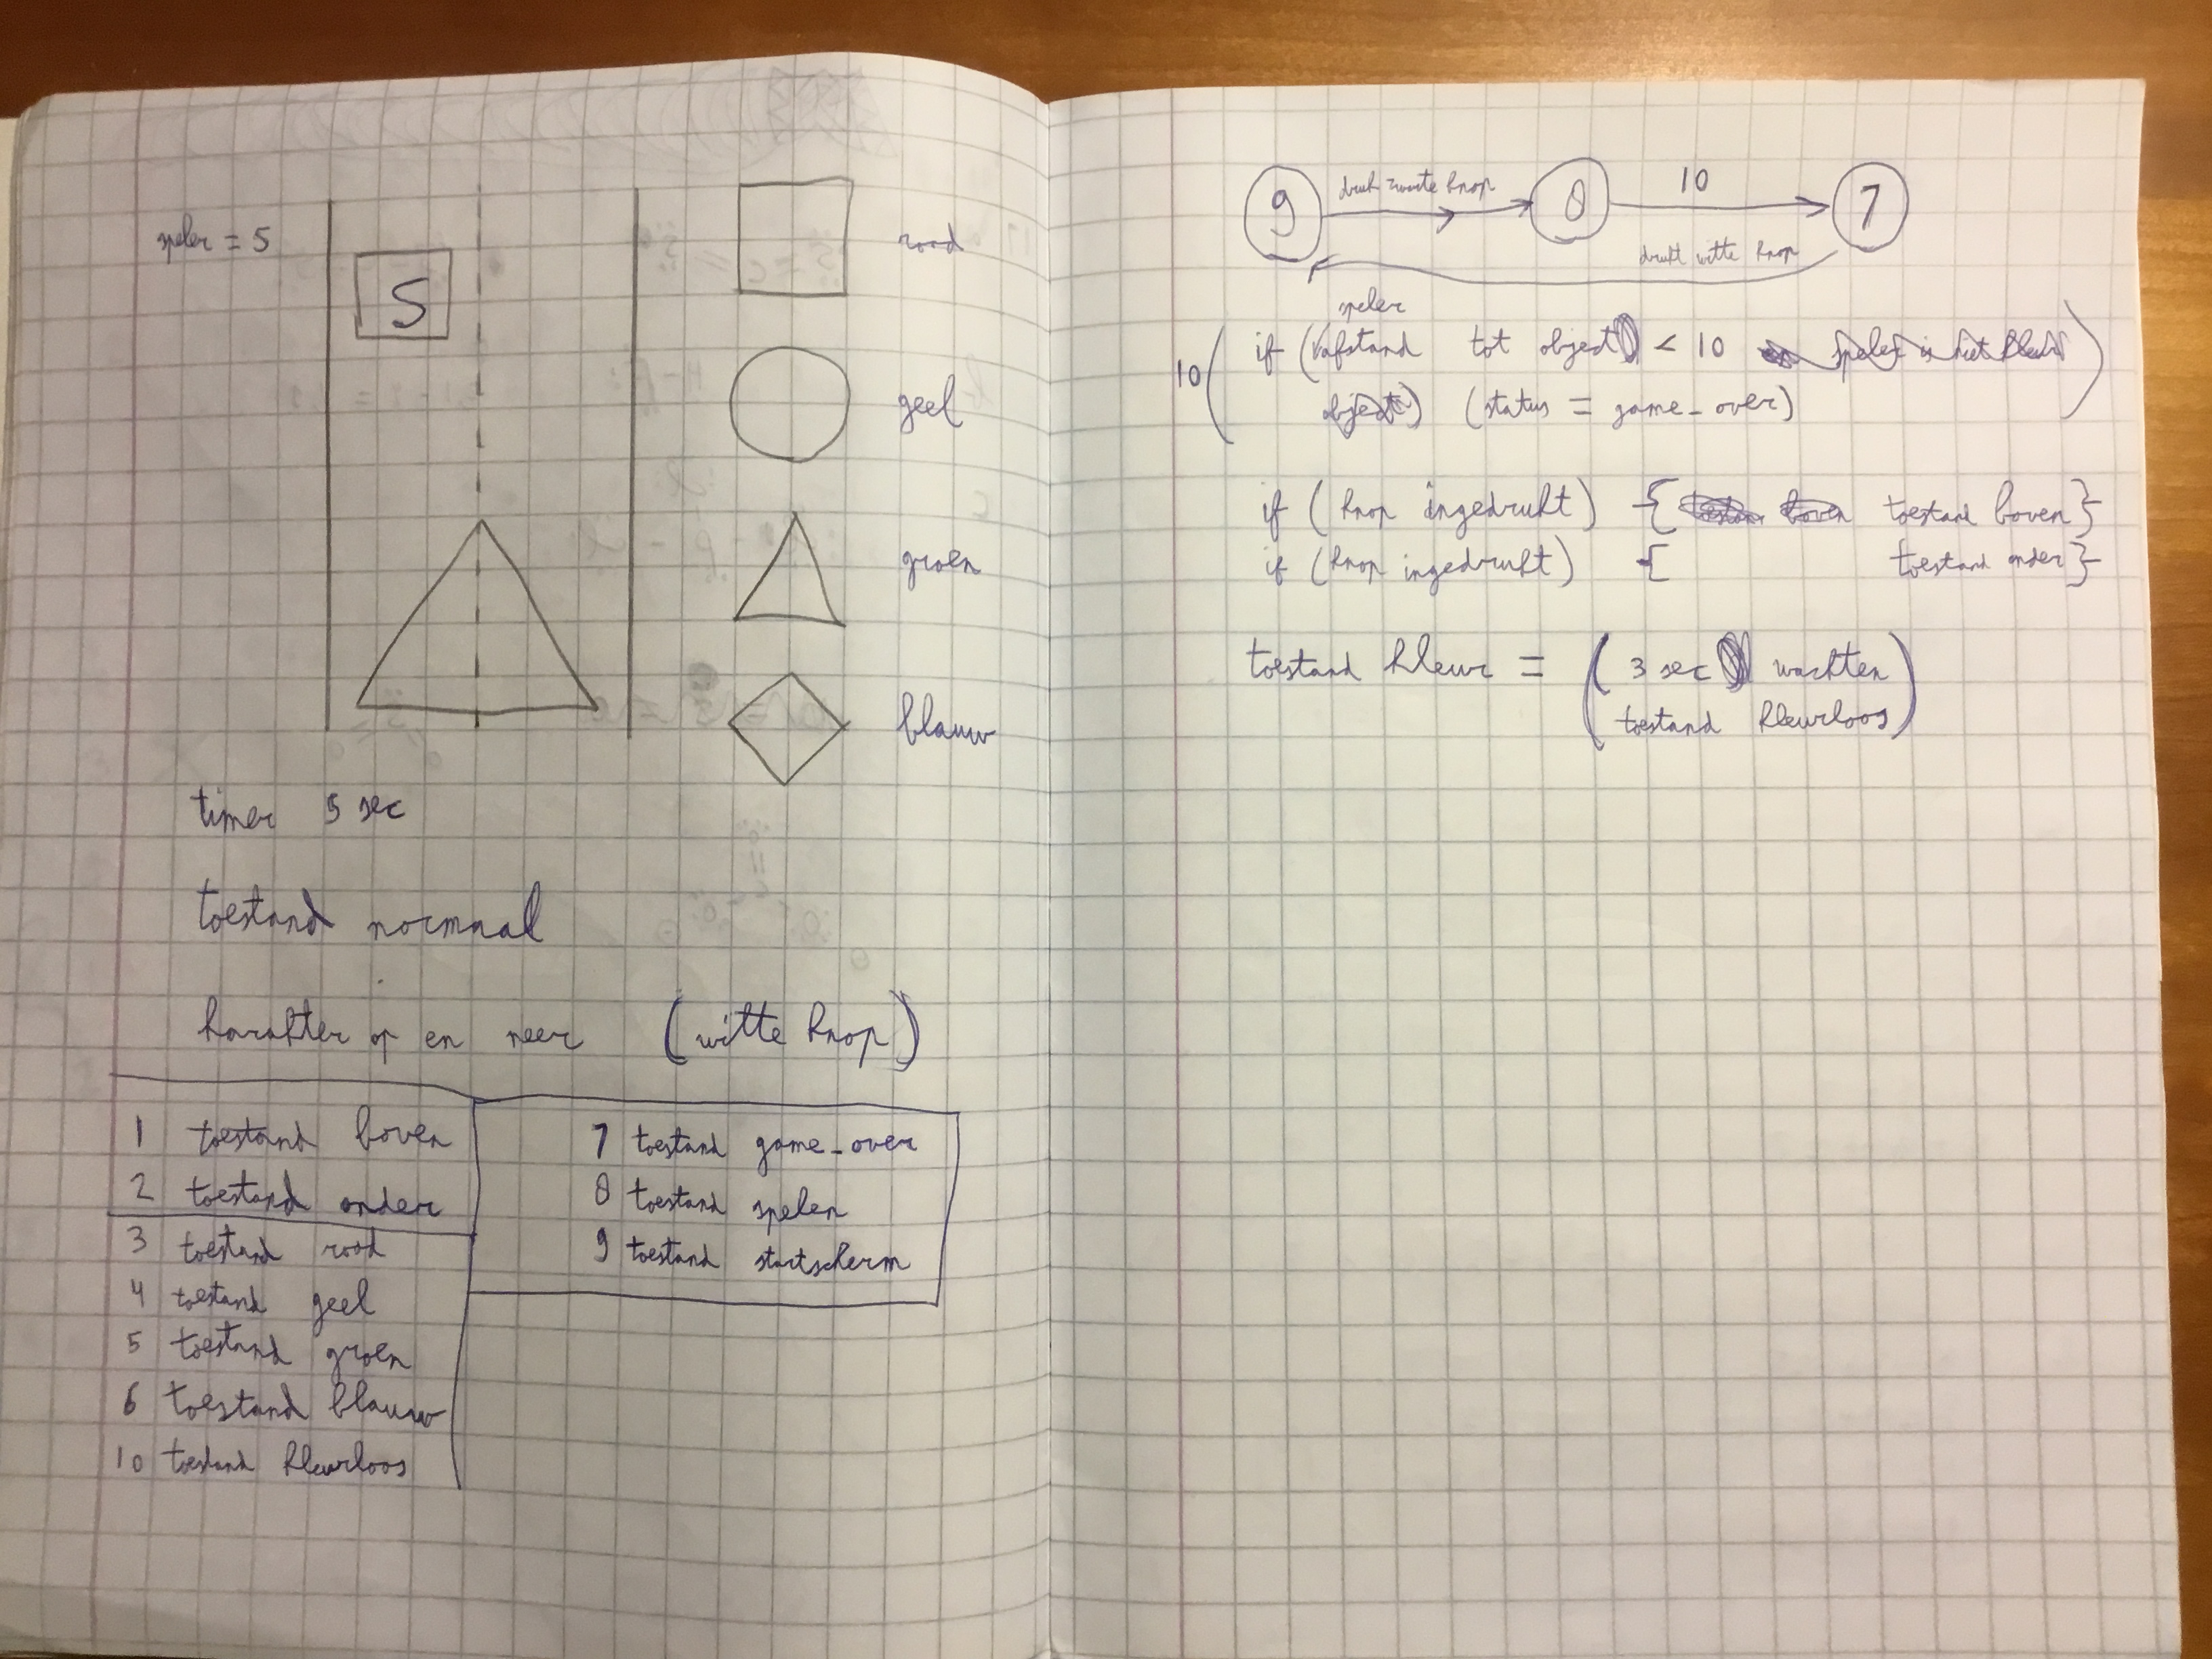 speler = S
S
rood
geel
groen
blauw
timer 5 sec
toestand normaal
karakter op en neer (witte knop)
1 toestand boven
2 toestand onder
3 toestand rood
4 toestand geel
5 toestand groen
6 toestand blauw
10 toestand kleurloos
7 toestand game_over
8 toestand spelen
9 toestand startscherm
9 druk zwarte knop 8 10 7
drukt witte knop
speler
10 ( if (afstand tot object < 10
object) (status = game_over)
if (knop ingedrukt) { toestand boven}
if (knop ingedrukt) { toestand onder}
toestand kleur = ( 3 sec wachten
toestand kleurloos )